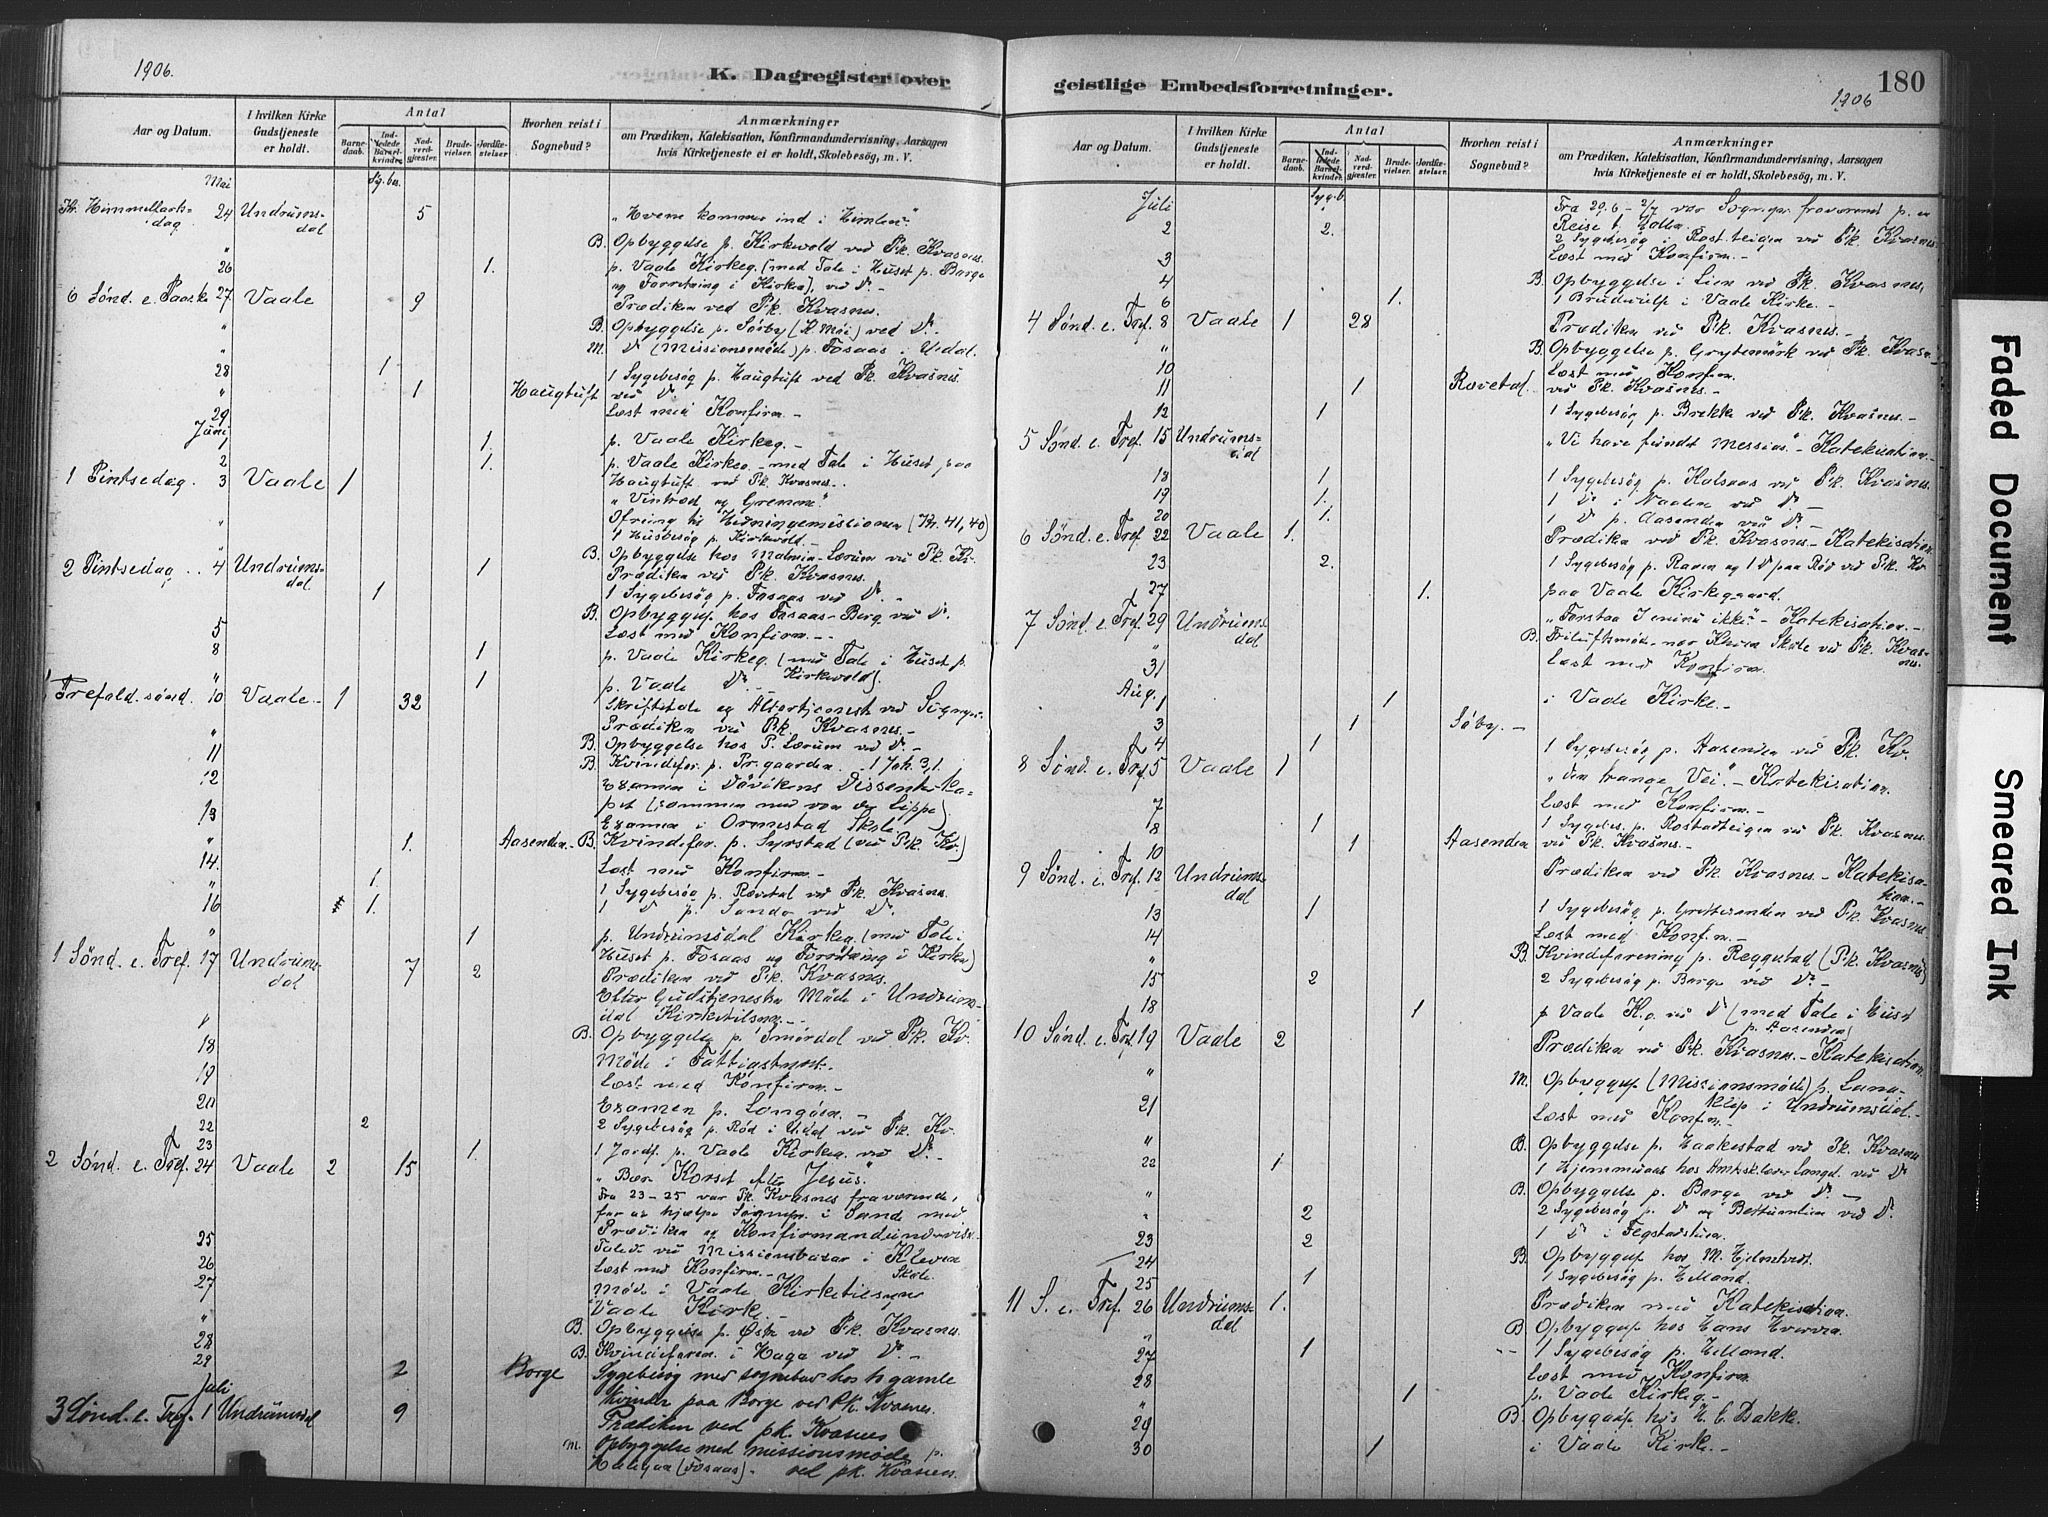 1906.
K. Dagregister over
Aar og Datum.
I hvilken Kirke Gudstjeneste er holdt.
Antal
Barnedaab.
Indledede Barselkvinder.
Nadverdgjæster.
Brudevielser.
Jordfæstelser.
Hvorhen reist i Sognebud?
Anmærkninger
om Prædiken, Katekisation, Konfirmandundervisning, Aarsagen
hvis Kirketjeneste ei er holdt, Skolebesøg, m. V.
Mai Sg. bes.
Kr. Himmelfartsdag 24 Undrumsdal 5 "Hvem kommer ind i Himlen?"
" B. Opbyggelse p. Kirkevold ved P.k. Kvasnes.
26 1. p. Vaale Kirkeg. (med Tale i Huset p. Barge
og Forretning i Kirken), ved Do. -
6 Sønd. e. Paaske 27 Vaale 9 Prædiken ved P.k. Kvasnes.
" B. Opbyggelse p. Sørby ved Do.
" M. Do (Missionsmøde) p. Fosaas i Udal.
28 1 1 Sygebesøg p. Haugtuft ved P.k. Kvasnes.
" 1 Haugtuft ved Do.
29 Læst med Konfirm. -
Juni
1 1. p. Vaale Kirkeg. -
2 1. p. Vaale Kirkeg. - med Tale i Huset paa
Haugtuft ved P.k. Kvasnes.
1 Pintsedag. 3 Vaale 1 "Vintræd og Grenene."
Ofring til Hedningemissionen (Kr. 41,40)
" 1 Husbesøg p. Kirkevold. -
" B. Opbyggelse hos Lærum ved P.k. Kv.
2 Pintsedag 4 Undrumsdal 1 Prædiken ved P.k. Kvasnes.
1 1 Sygebesøg p. Fosaas ved Do. -
B. Opbyggelse hos Fosaas-Berg ved Do.
5 Læst med Konfirm. -
8 1 p. Vaale Kirkeg. (med Tale i Huset p.
Kirkevold).
" 1 p. Vaale Do.
Trefold. sønd. 10 Vaale 1 32 Skriftetale og Altertjeneste ved Sognepr.
Prædiken ved P.k. Kvasnes. -
" B. Opbyggelse hos P. Lærum ved Do. -
11 B. Kvindefor. p. Pr.gaarden. - 1 Joh. 3,1.
12 Examen i Døvikens Dissenterkapet
(sammen med von der Lippe)
13 Examen i Ormestad Skole.
" 1. Aasenden B. Kvindefor. p. Syrstad (ved P.k. Kv.)
14. Læst med Konfirm. -
" 1. 1 Sygebesøg p. Røvetal ved P.k. Kvasnes.
16 1. 1 Do p. Sando ved Do.
" 1 p. Undrumsdal Kirkeg. (med Tale i
Huset p. Fosaas og Forretning i Kirken)
1 Sønd. e. Tref. 17 Undrumsdal 7 2 Prædiken ved P.k. Kvasnes.
Efter Gudstjenesten Møde i Undrumsdal
Kirketilsyn. -
" B. Opbyggelse p. Smørdal ved P.k. Kv.
18 Møde i Fattigstyret. -
19 Læst med Konfirm. -
20 Examen p. Langøen. -
22 2 2 Sygebesøg p. Rød i Udal ved P.k. Kv.
23 1. 1 Jordf. p. Vaale Kirkeg. ved Do. -
2 Sønd. e. Tref. 24 Vaale 2 15 "Bær Korset efter Jesus."
Fra 23-25 var P.k. Kvasnes fraværende,
for at hjælpe Sognepr. i Sande med
Prædiken og Konfirmandundervisn.
25 Talede ved Missionsbazar i Kleven
Skole.
26 Læst med Konfirm. -
27 Møde i Vaale Kirketilsyn
Vaale Kirke. -
" B. Opbyggelse p. Østre ved P.k. Kvasnes.
28 B. Kvindeforen. i Haga ved Do. -
29 2 Borge Sygebesøg med sognebud hos 2 gamle
Kvinder paa Borge ved P.k. Kvasnes.
Juli
3 Sønd. e. Tref. 1 Undrumsdal 9 Prædiken ved pk. Kvasnes
m. Opbyggelse med missionsmøde p.
(Fosaas). ved pk. Kvasnes.
geistlige Embedsforretninger.
180
1906
Aar og Datum.
I hvilken Kirke Gudstjeneste er holdt.
Antal
Barnedaab.
Indledede Barselkvinder.
Nadverdgjæster.
Brudevielser.
Jordfæstelser.
Hvorhen reist i Sognebud?
Anmærkninger
om Prædiken, Katekisation, Konfirmandundervisning, Aarsagen
hvis Kirketjeneste ei er holdt, Skolebesøg, m. V.
Juli Syg.b. Fra 29.6 - 2/7 var Sogn.pr. fraværend p. en
Reise t.
2 2. 2 Sygebesøg i Rostadteigen ved P.k. Kvasnes.
3 Læst med Konfirm. -
4 B. Opbyggelse i Lien ved P.k. Kvasnes.
6 1. 1 Brudevielse i Vaale Kirke. -
4 Sønd. e. Tref. 8 Vaale 1 28 Prædiken ved P.k. Kvasnes. -
" B. Opbyggelse p. Grytemørk ved P.k. Kvasn.
10 Læst med Konfirm.
11 1 Røvetal. ved P.k. Kvasnes. -
12 1 1 Sygebesøg p. Brekke ved P.k. Kvasnes. -
5 Sønd. e. Tref. 15 Undrumsdal "Vi have fundet Messias" - Katekisation. -
18 1 1 Sygebesøg p. Holsaas ved P.k. Kvasnes.
19 1. 1 Do i ved Do. -
20 1. 1 Do p. Aasenden ved Do. -
6 Sønd. e. Tref 22 Vaale 1. Prædiken ved P.k. Kvasnes - Katekisation.
23 2. 1 Sygebesøg p. Raaen og 1 Do paa Rød ved P.k. Kv.
27 1. paa Vaale Kirkegaard.
7 Sønd. e. Tref. 29 Undrumsdal "Forstaa I endnu ikke" - Katekisation. -
" B. Friluftsmøde nær Skole ved P.k. Kvasnes.
31 Læst med Konfirm.
Aug.
1 1 i Vaale Kirke. -
3 1 Søby. -
4 1 1 Sygebesøg p. Aasenden ved P.k. Kv.
8 Sønd. e. Tref. 5 Vaale 1 "Den trange Vei". - Katekisation.
7 Læst med Konfirm. -
8 1 1 Sygebes. p. Rostadteigen ved P.k. Kvasnes.
10 1 Aasenden ved P.k. Kvasnes. -
9 Sønd. e. Tref. 12 Undrumsdal Prædiken ved P.k. Kvasnes. - Katekisation. -
13 1 1 Sygebesøg p. ved P.k. Kvasnes.
14 Læst med Konfirm. -
" B. Kvindeforening p. Reggestad (P.k. Kvasnes)
15 2 2 Sygebesøg p. Barge ved Do. -
18 1 p. Vaale K.g. ved Do (med Tale i Huset
p. Aasenden)
10 Sønd. e. Tref. 19 Vaale 2 Prædiken ved P.k. Kvasnes. - Katekisation
" M. Opbyggelse (Missionsmøde) p. Langklep
i Undrumsdal. -
21 Læst med Konfirm. -
" B. Opbyggelse p. Haakestad ved P.k. Kvasnes
22 1 1 Hjemmedaab hos Langd. ved Do
" B. Opbyggelse p. Barge ved Do. -
" 2 2 Sygebesøg p. Do og ved Do.
23 2 1 Do i
24 B. Opbyggelse hos M.
25 1 1 Sygebesøg p. Eilland.
11 S. e. Tref. 26 Undrumsdal 1. Prædiken med Katekisation.
" B Opbyggelse hos Hans
27 1 1 Sygebesøg p. Eilland.
28 Læst med Konfirm
" 1 p. Vaale Kirkeg. -
29 B. Opbyggelse hos H. C. Bakke.
30 1 i Vaale Kirke. -
Faded Document
Smeared Ink